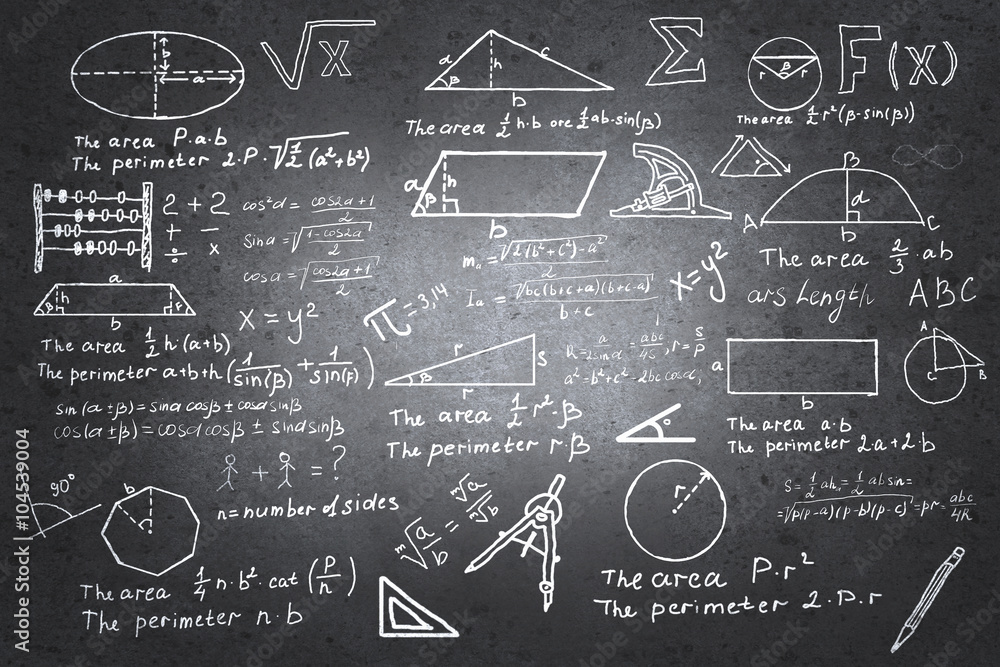 b
a
√x
a
c
h
β
b
Σ
β
r
r
F(x)
The area P.a.b
The perimeter 2.P.√1/2 (a²+b²)
The area 1/2 h.b ore 1/2 ab.sin(β)
The area 1/2.r²(β-sin(β))
2 + 2
+ -
÷ x
cos²a = cos2a+1/2
Sina = √1-cos2a/2
cosa = √cos2a+1/2
a
h
β
b
B
d
A
C
b
The area 2/3.ab
ars Length
ABC
mₐ = √2(b²+c²)-a²/2
Iₐ = √bc(b+c+a)(b+c-a)/b+c
x=y²
a
h
β
r
b
The area 1/2 h.(a+b)
The perimeter a+b+h(1/sin(β)+1/sin(r))
x=y²
π=3,14
r
β
S
r
R=a/2sina=abc/4S, r=S/P
a²=b²+c²-2bc cosa,
a
b
A
C
B
sin(a±β)=sina cosβ±cosa sinβ
cos(a±β)=cosa cosβ±sina sinβ
The area 1/2 r².β
The perimeter r.β
The area a.b
The perimeter 2.a+2.b
+ = ?
n=number of sides
90°
b
ᵐ√a/b = ᵐ√a/ᵐ√b
r
S=1/2ahₐ=1/2absin=
=√p(p-a)(p-b)(p-c)=pr=abc/4R
The area 1/4 n.b².cat(P/n)
The perimeter n.b
The area P.r²
The perimeter 2.P.r
Adobe Stock | #104539004